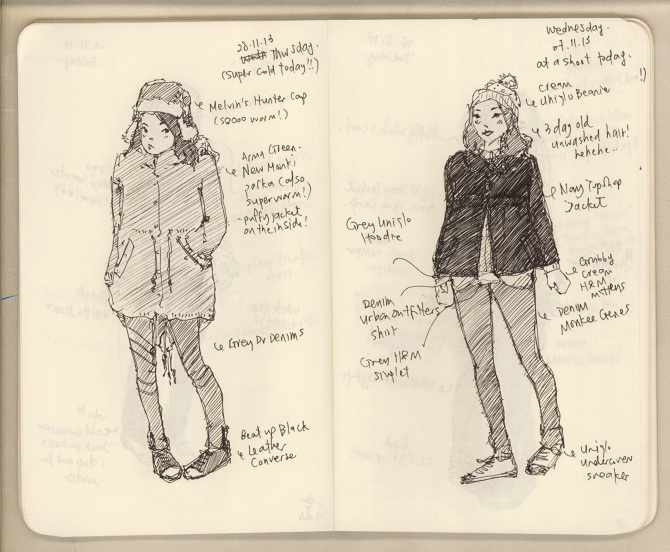 28.11.13
Thursday.
(super cold today!!)
Melvin's Hunter Cap
(sooooo warm!)
Army Green
New Monki
parka (also
super warm!)
- puffy jacket
on the inside!
Grey Dr Denims
Beat up Black
Leather
Converse
Wednesday.
07.11.13
at a shoot today.
!)
cream
Uniqlo Beanie
3 day old
unwashed hair!
hehehe..
Navy Topshop
Jacket
Grey Uniqlo
Hoodie
Grubby
cream
H&M
mittens
Denim
Urban outfitters
shirt
Denim
Monkee Genes
Grey H&M
singlet
Uniqlo
undercover
sneaker